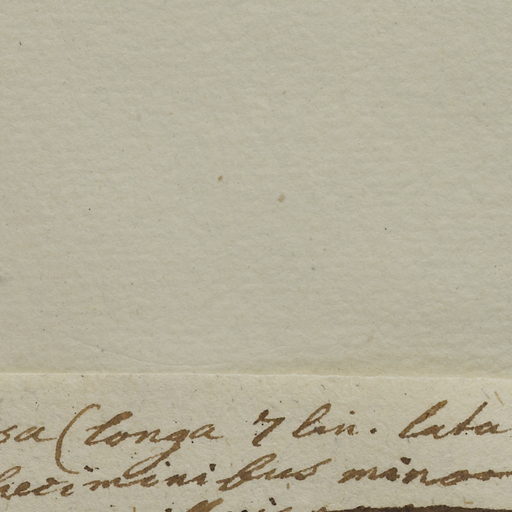 sa (longa 7 lin. lata
speciminibus minor